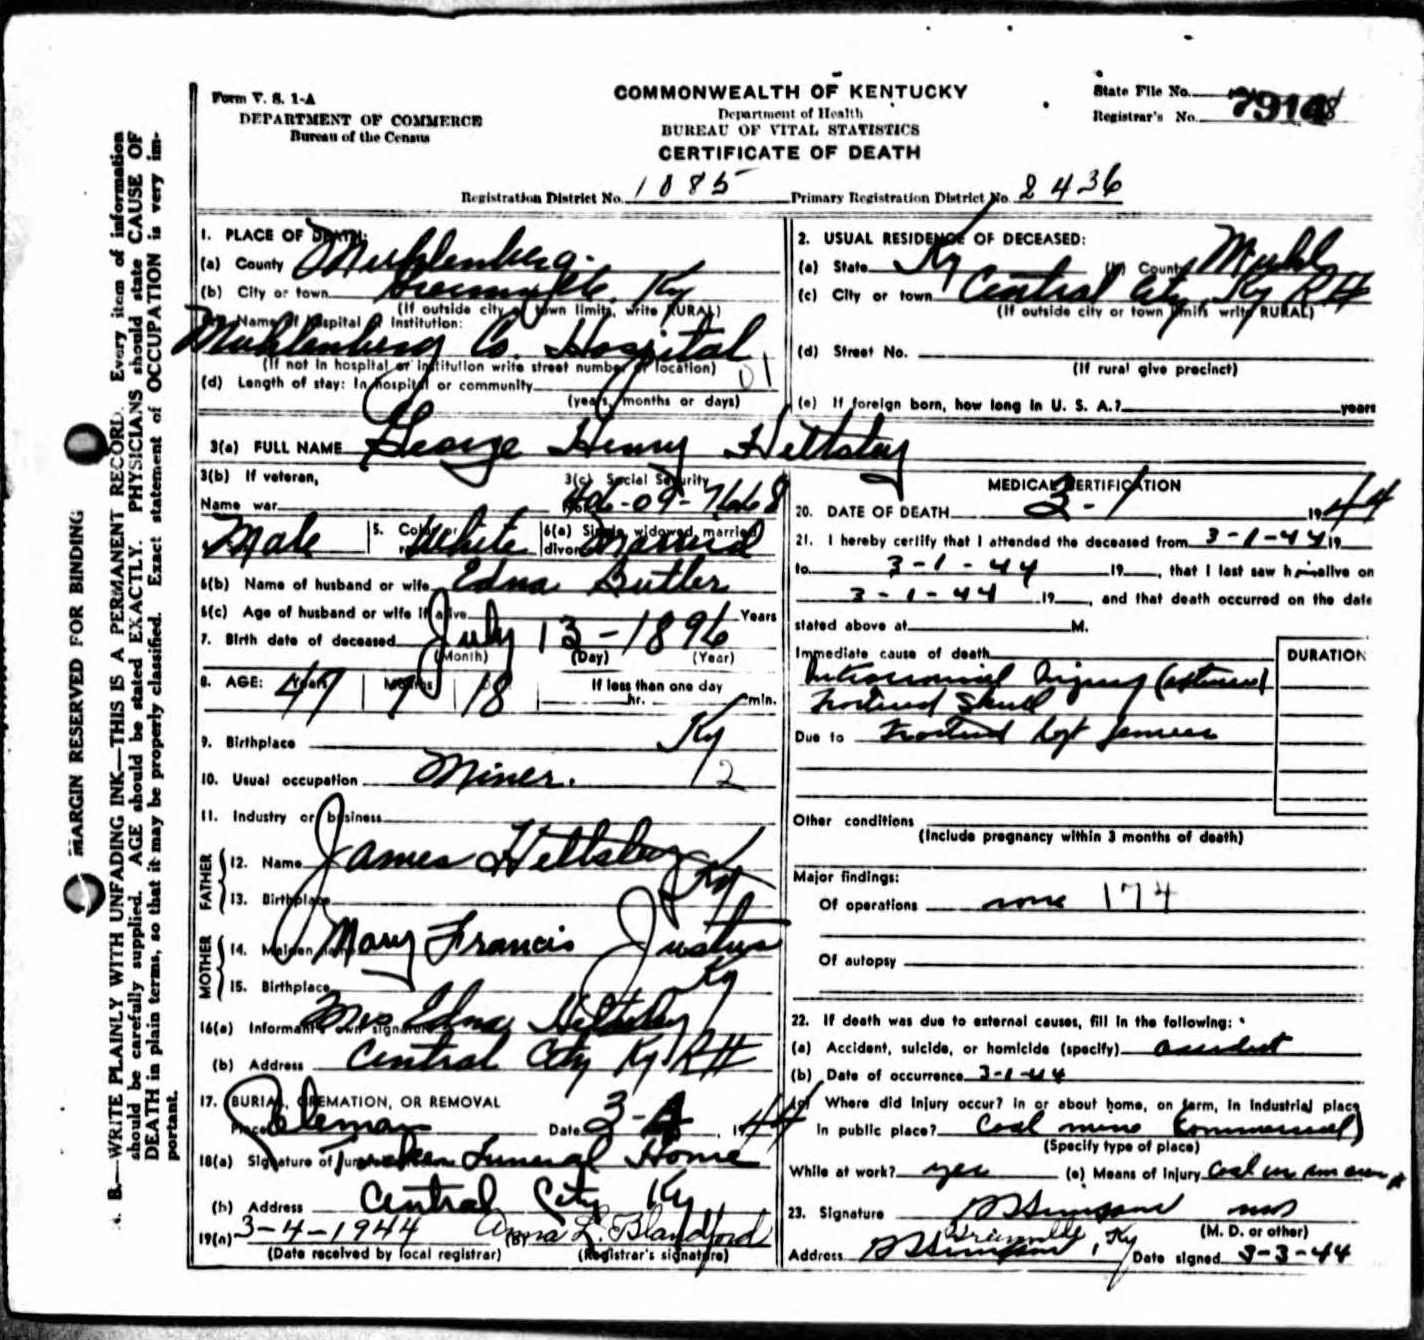 Form V. S. 1-A
DEPARTMENT OF COMMERCE
Bureau of the Census
COMMONWEALTH OF KENTUCKY
Department of Health
BUREAU OF VITAL STATISTICS
CERTIFICATE OF DEATH
State File No.
Registrar's No. 7914
Registration District No. 1085 Primary Registration District No. 2436
MARGIN RESERVED FOR BINDING
N. B.—WRITE PLAINLY WITH UNFADING INK—THIS IS A PERMANENT RECORD. Every item of information
should be carefully supplied. AGE should be stated EXACTLY. PHYSICIANS should state CAUSE OF
DEATH in plain terms, so that it may be properly classified. Exact statement of OCCUPATION is very im-
portant.
1. PLACE OF DEATH:
(a) County Muhlenberg
(b) City or town Greenville, Ky
(If outside city or town limits, write RURAL)
Name of hospital Institution:
Muhlenberg Co. Hospital
(If not in hospital or institution write street number or location)
(d) Length of stay: In hospital or community
(years, months or days)
01
2. USUAL RESIDENCE OF DECEASED:
(a) State Ky (b) County Muhl
(c) City or town Central City, Ky R#
(If outside city or town limits write RURAL)
(d) Street No.
(If rural give precinct)
(e) If foreign born, how long in U. S. A.? years
3(a) FULL NAME George Henry Heltsley
3(b) If veteran,
Name war
3(c) Social Security
5. Color or
Male White 6(a) Single, widowed, married
Married
6(b) Name of husband or wife Edna Butler
6(c) Age of husband or wife if alive Years
7. Birth date of deceased July 13-1896
(Month) (Day) (Year)
8. AGE: Years 47 Months 7 18 If less than one day
hr. min.
9. Birthplace Ky
10. Usual occupation Miner. 12
11. Industry or business
FATHER
12. Name James Heltsley
13. Birthplace Ky
MOTHER
14. Maiden Mary Francis Justus
15. Birthplace Ky
16(a) Informant's own signature Mrs Edna Heltsley
(b) Address Central City Ky R#
17. BURIAL, CREMATION, OR REMOVAL
Place Coleman Date 3-4, 1944
18(a) Signature of Tucker Funeral Home
(b) Address Central City Ky
19(a) 3-4-1944 (B) Anna L. Blandford
(Date received by local registrar) (Registrar's signature)
MEDICAL CERTIFICATION
20. DATE OF DEATH 3-1 1944
21. I hereby certify that I attended the deceased from 3-1-44 19
to 3-1-44 19, that I last saw him alive on
3-1-44 19, and that death occurred on the date
stated above at M.
Immediate cause of death
DURATION
Intracranial Injury
Fractured Skull
Due to Fractured left
Other conditions
(Include pregnancy within 3 months of death)
Major findings:
Of operations none 174
Of autopsy
22. If death was due to external causes, fill in the following:
(a) Accident, suicide, or homicide (specify) accident
(b) Date of occurrence 3-1-44
(c) Where did injury occur? in or about home, on farm, in industrial place
in public place? Coal mine (Commercial)
(Specify type of place)
While at work? yes (e) Means of Injury
23. Signature
(M. D. or other)
Address Greenville, Ky Date signed 3-3-44